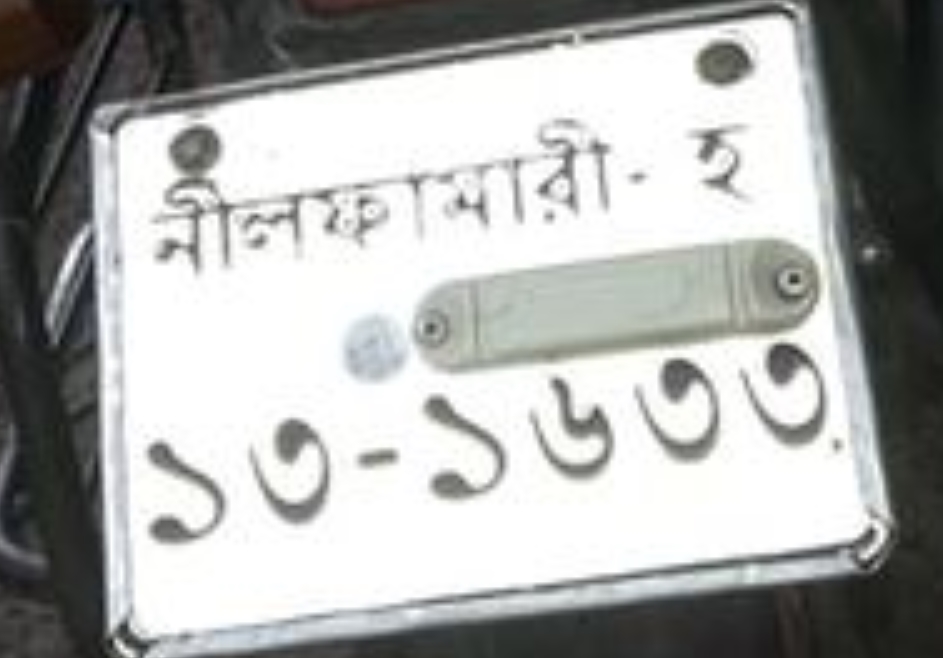 নীলফামারী- হ
১৩-১৬৩৩